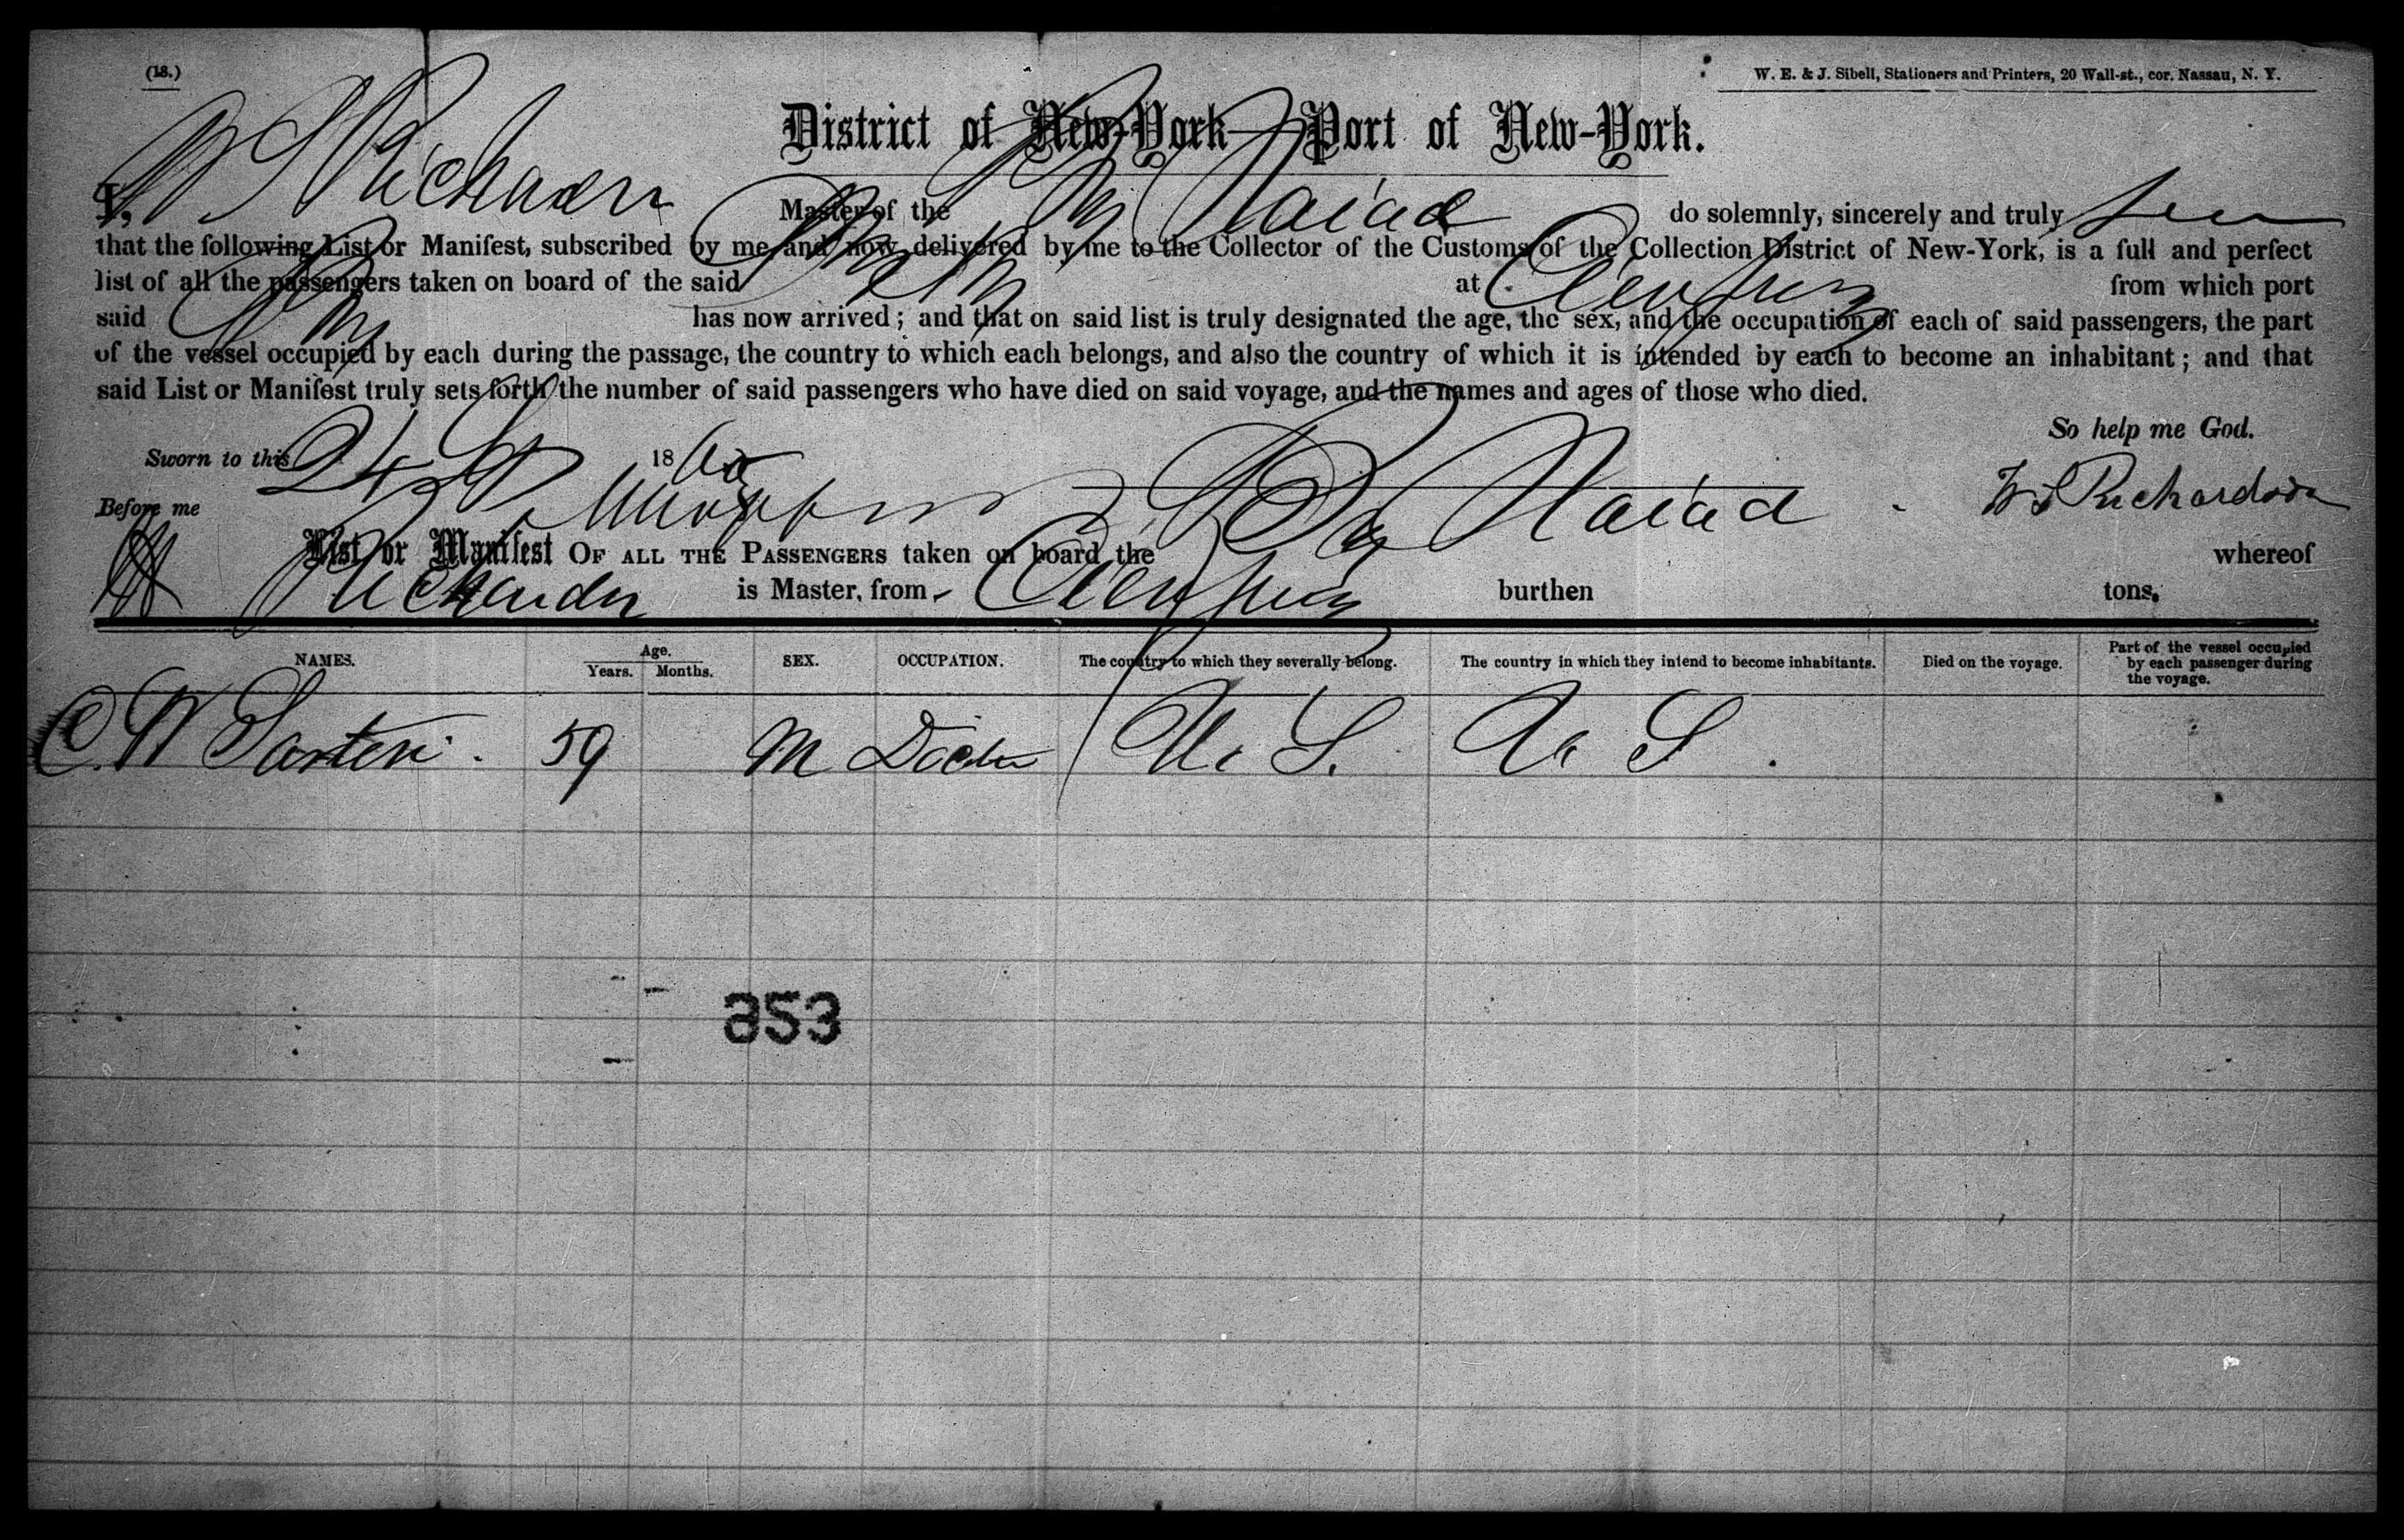 (18.)
W. E. & J. Sibell, Stationers and Printers, 20 Wall-st., cor. Nassau, N. Y.
District of New-York—Port of New-York.
I, W S Richardson Master of the Naiad do solemnly, sincerely and truly
that the following List or Manifest, subscribed by me and now delivered by me to the Collector of the Customs of the Collection District of New-York, is a full and perfect
list of all the passengers taken on board of the said at Cienfuegos from which port
said has now arrived; and that on said list is truly designated the age, the sex, and the occupation of each of said passengers, the part
of the vessel occupied by each during the passage, the country to which each belongs, and also the country of which it is intended by each to become an inhabitant; and that
said List or Manifest truly sets forth the number of said passengers who have died on said voyage, and the names and ages of those who died.
So help me God.
Sworn to this 24 1860
Before me W S Richardson
List or Manifest OF ALL THE PASSENGERS taken on board the Naiad whereof
Richardson is Master, from Cienfuegos burthen tons.
NAMES. Age. Years. Months. SEX. OCCUPATION. The country to which they severally belong. The country in which they intend to become inhabitants. Died on the voyage. Part of the vessel occupied by each passenger during the voyage.
C. W 59 M Doctor U. S. U. S.
253